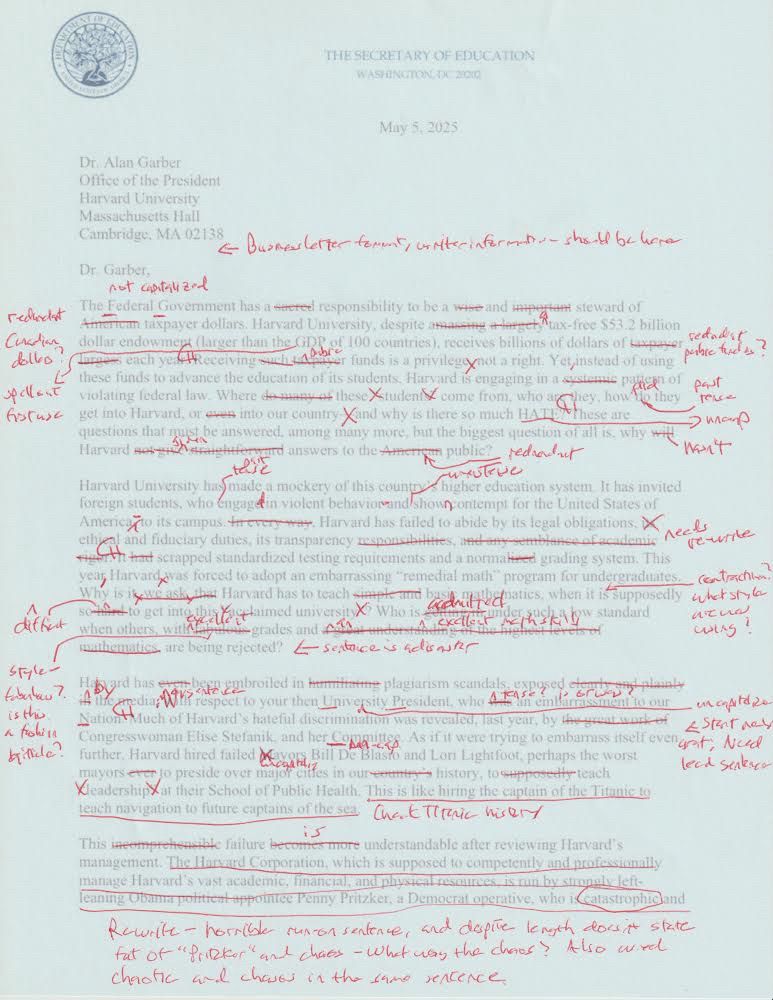 DEPARTMENT OF EDUCATION
UNITED STATES OF AMERICA
THE SECRETARY OF EDUCATION
WASHINGTON, DC 20202
May 5, 2025
Dr. Alan Garber
Office of the President
Harvard University
Massachusetts Hall
Cambridge, MA 02138
← Business letter format, writer information – should be here
Dr. Garber,
not capitalized
The Federal Government has a sacred responsibility to be a wise and important steward of
American taxpayer dollars. Harvard University, despite amassing a largely tax-free $53.2 billion
dollar endowment (larger than the GDP of 100 countries), receives billions of dollars of taxpayer
largess each year. Receiving such taxpayer funds is a privilege, not a right. Yet, instead of using
these funds to advance the education of its students, Harvard is engaging in a systemic pattern of
violating federal law. Where do many of these students come from, who are they, how do they
get into Harvard, or even into our country – and why is there so much HATE? These are
questions that must be answered, among many more, but the biggest question of all is, why will
Harvard not give straightforward answers to the American public?
redundant
Canadian
dollars?
spell out
first use
a
redundant
public funds?
CH
public
did
past
tense
CH
uncap
hasn't
given
redundant
Harvard University has made a mockery of this country's higher education system. It has invited
foreign students, who engage in violent behavior and show contempt for the United States of
America, to its campus. In every way, Harvard has failed to abide by its legal obligations, its
ethical and fiduciary duties, its transparency responsibilities, and any semblance of academic
rigor. It had scrapped standardized testing requirements and a normalized grading system. This
year Harvard was forced to adopt an embarrassing "remedial math" program for undergraduates.
Why is it, we ask, that Harvard has to teach simple and basic mathematics, when it is supposedly
so hard to get into this acclaimed university? Who is getting in under such a low standard
when others, with fabulous grades and a great understanding of the highest levels of
mathematics, are being rejected?
tense
d
n
needs
re-write
CH
contraction?
what style
are we
using?
difficult
admitted
excellent
excellent math skills
← sentence is a disaster
Harvard has even been embroiled in humiliating plagiarism scandals, exposed clearly and plainly
in the media, with respect to your then University President, who is an embarrassment to our
Nation. Much of Harvard's hateful discrimination was revealed, last year, by the great work of
Congresswoman Elise Stefanik, and her Committee. As if it were trying to embarrass itself even
further, Harvard hired failed Mayors Bill De Blasio and Lori Lightfoot, perhaps the worst
mayors ever to preside over major cities in our country's history, to supposedly teach
"leadership" at their School of Public Health. This is like hiring the captain of the Titanic to
teach navigation to future captains of the sea.
style –
fabulous?
is this
a fashion
article?
by
CH
uncapitalize
← Start new
graf, Need
lead sentence
Check Titanic history
This incomprehensible failure becomes more understandable after reviewing Harvard's
management. The Harvard Corporation, which is supposed to competently and professionally
manage Harvard's vast academic, financial, and physical resources, is run by strongly left-
leaning Obama political appointee Penny Pritzker, a Democrat operative, who is catastrophic and
is
Rewrite – horrible run on sentence, and despite length doesn't state
of "Pritzker" and chaos – What was the chaos? Also used
chaotic and chaos in the same sentence.